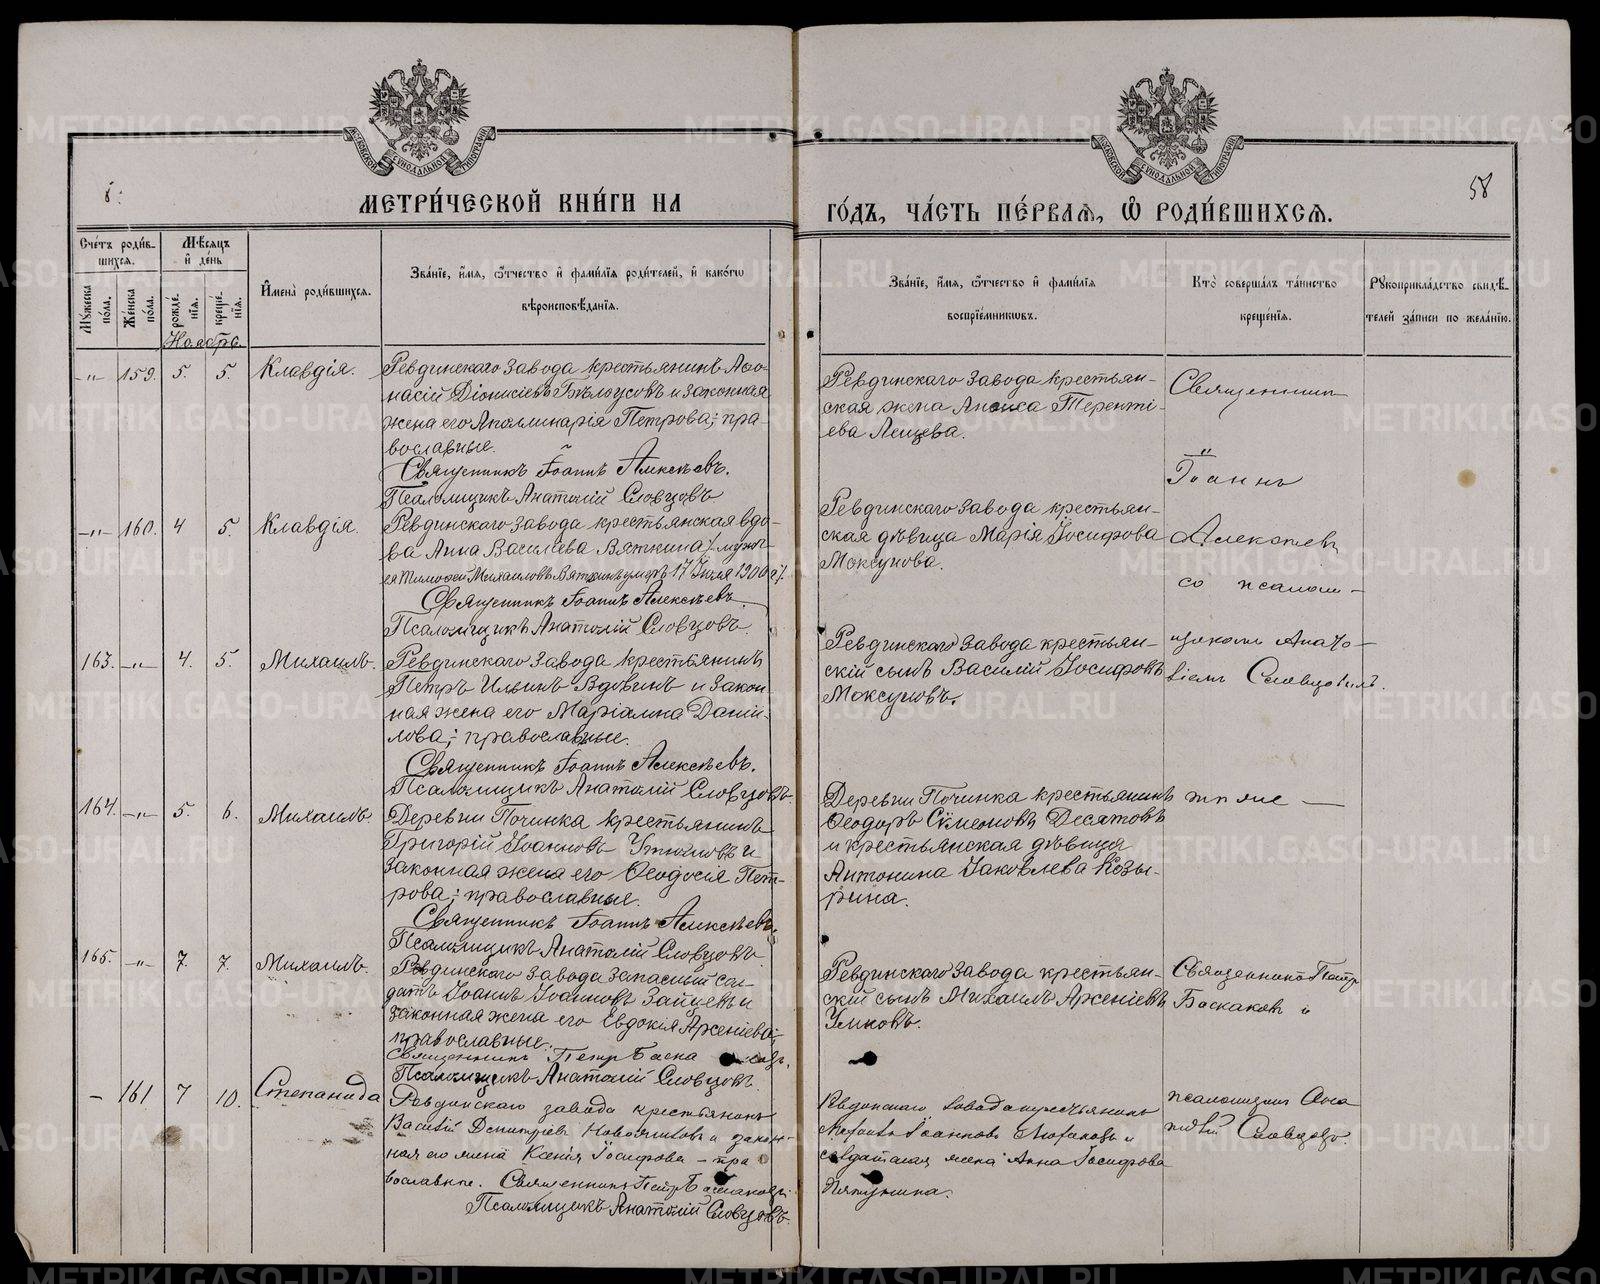 МЕТРИ́ЧЕСКОЙ КНИ́ГИ НА
ГО́ДЪ, ЧА́СТЬ ПЕ́РВАЯ, Ѡ҆ РОДИ́ВШИХСЯ.
58
Сче́тъ роди́вшихся.
Мꙋ́жеска по́ла.
Же́нска по́ла.
Мѣ́сяцъ и҆ де́нь
рожде́нїя.
креще́нїя.
И҆мена̀ роди́вшихся.
Зва́нїе, и҆́мя, ѻ҆́тчество и҆ фами́лїя роди́телей, и҆ како́гѡ вѣроисповѣ́данїя.
Зва́нїе, и҆́мя, ѻ҆́тчество и҆ фами́лїя воспрїе́мникѡвъ.
Кто̀ соверша́лъ та́инство креще́нїя.
Рꙋкоприкла́дство свидѣ́телей за́писи по жела́нїю.
Ноября.
-"- 159. 5. 5. Клавдія.
Ревдинскаго завода крестьянинъ Аѳо-
насій Діонисіевъ Бѣлоусовъ и законная
жена его Аполлинарія Петрова; пра-
вославные.
Священникъ Іоаннъ Алексѣевъ.
Псаломщикъ Анатолій Словцовъ
Ревдинскаго завода крестьян-
ская жена Аниса Теренті-
ева Лещева.
Священник
Іоаннъ
-"- 160. 4 5. Клавдія.
Ревдинскаго завода крестьянская вдо-
ва Анна Василіева Вяткина /. мужъ
ея Тимоѳей Михаиловъ Вяткинъ умеръ 17 Іюля 1900 г /.
Священникъ Іоаннъ Алексѣевъ.
Псаломщикъ Анатолій Словцовъ.
Ревдинскаго завода крестьян-
ская дѣвица Марія Іосифова
Моксунова.
Алексѣевъ
со псалом-
щикомъ Анато-
ліемъ Словцовымъ.
163. -"- 4. 5. Михаилъ.
Ревдинскаго завода крестьянинъ
Петръ Ильинъ Вдовинъ и закон-
ная жена его Маріамна Даніи-
лова; православные.
Священникъ Іоаннъ Алексѣевъ.
Псаломщикъ Анатолій Словцовъ.
Ревдинскаго завода крестьян-
скій сынъ Василій Іосифовъ
Моксуновъ.
164. -"- 5. 6. Михаилъ.
Деревни Починка крестьянинъ
Григорій Іоанновъ Утюмовъ и
законная жена его Ѳеодосія Пет-
рова; православные.
Священникъ Іоаннъ Алексѣевъ.
Псаломщикъ Анатолій Словцовъ.
Деревни Починка крестьянинъ
Ѳеодоръ Сѵмеоновъ Десятовъ
и крестьянская дѣвица
Антонина Іаковлева Козы-
рина.
165. -"- 7. 7. Михаилъ.
Ревдинскаго завода запасный сол-
датъ Іоаннъ Іоанновъ Зайцевъ и
законная жена его Евдокія Арсеніева;
православные.
Священникъ Петръ Баскаковъ.
Псаломщикъ Анатолій Словцовъ.
Ревдинскаго завода крестьян-
скій сынъ Михаилъ Арсеніевъ
Умновъ.
Священникъ Петр
Баскаковъ и
- 161 7 10. Степанида
Ревдинскаго завода крестьянинъ
Василій Димитріевъ и закон-
ная его жена Ксенія Іосифова - пра
вославные. Священникъ Петръ Баскаковъ.
Псаломщикъ Анатолій Словцовъ.
Ревдинскаго завода крестьянинъ
Іоанновъ и
солдатская жена Анна Іосифова
псаломщик Ана
толій Словцовъ.
METRIKI.GASO-URAL.RU